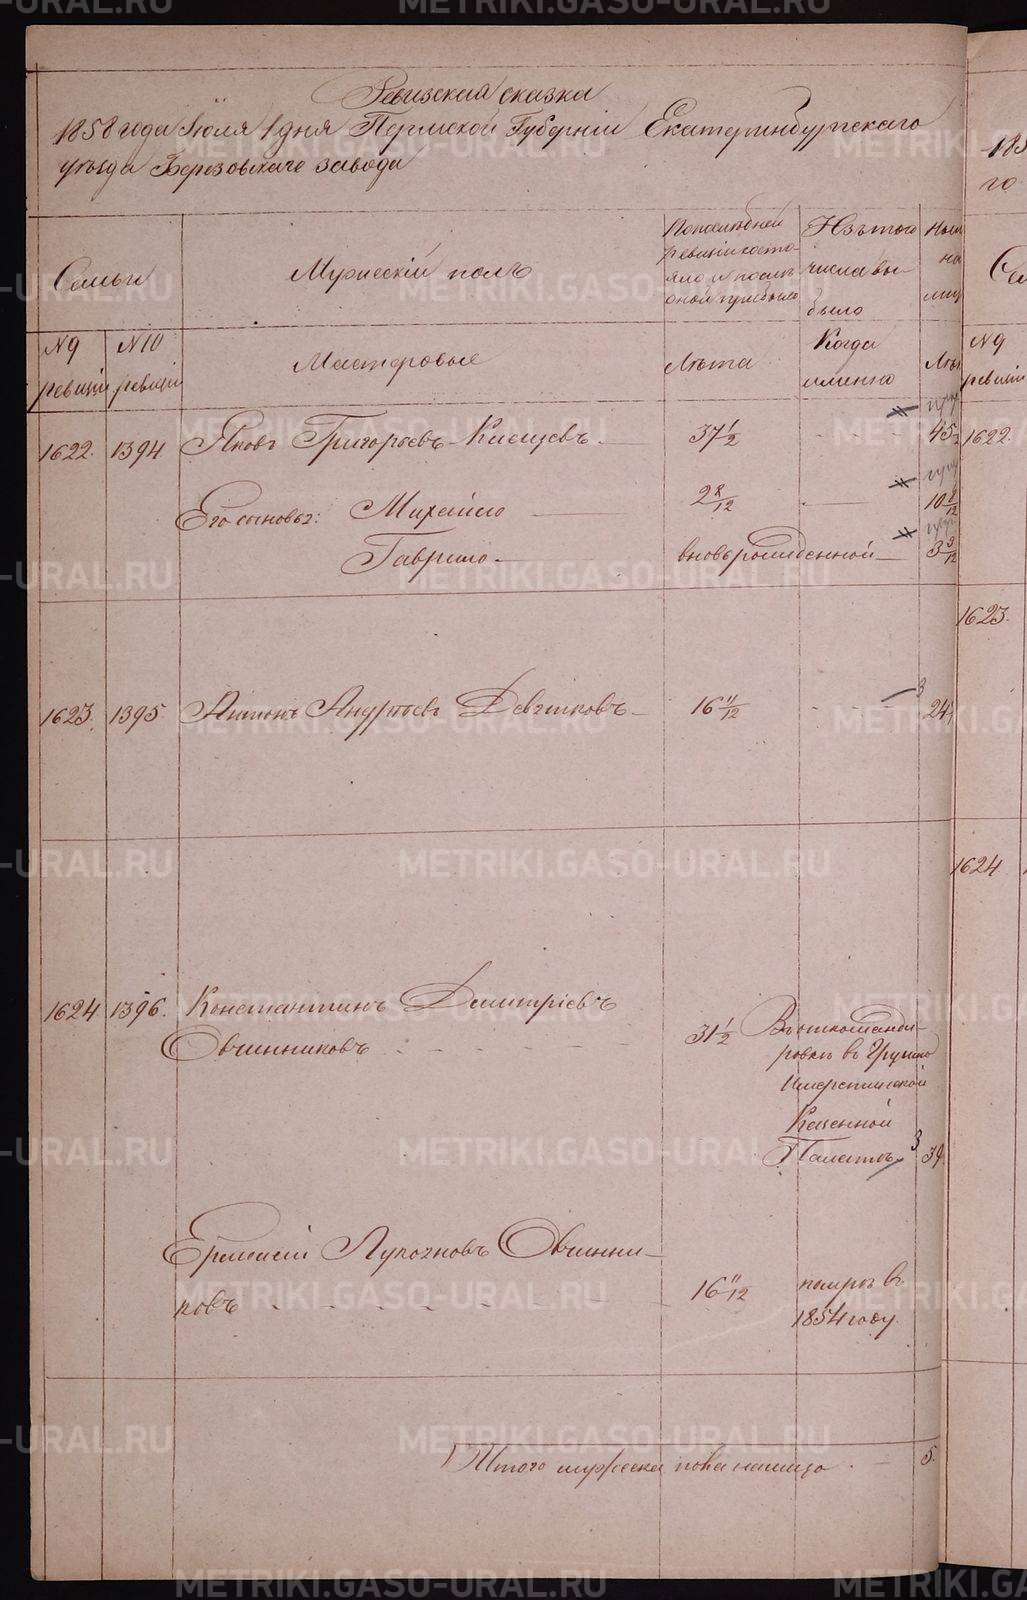 Ревизская сказка
1858 года Июля 1 дня Пермской Губерніи Екатеринбургскаго
уѣзда Березовскаго завода
Семьи
Мужескій полъ
По последней
ревизіи состо-
яло и послѣ
оной прибыло
Изъ того
числа вы-
было
Ныне
на
лиц
№ 9
ревизіи
№ 10
ревизіи
Мастеровые
Лѣта
Когда
именно
Лѣт
1622. 1394 Яковъ Григорьевъ 37 1/2 45
Его сыновья: Михайло 2 8/12 10 8/12
Гаврило вновьрожденной 3 3/12
1623. 1395 Антонъ Андреевъ Девятковъ 16 11/12 3 24
1624 1396. Константинъ Дмитріевъ
Овчинниковъ 31 1/2 Въ откоманди-
ровкѣ въ Грузино
Имеретинской
Казенной
Палатѣ 3 39
Ермолай Овчинни-
ковъ 16 11/12 помре въ
1854 году.
Итого мужеска пола налицо 5.
185
го
Се
№ 9
ревизіи
1622.
1623.
1624
METRIKI.GASO-URAL.RU